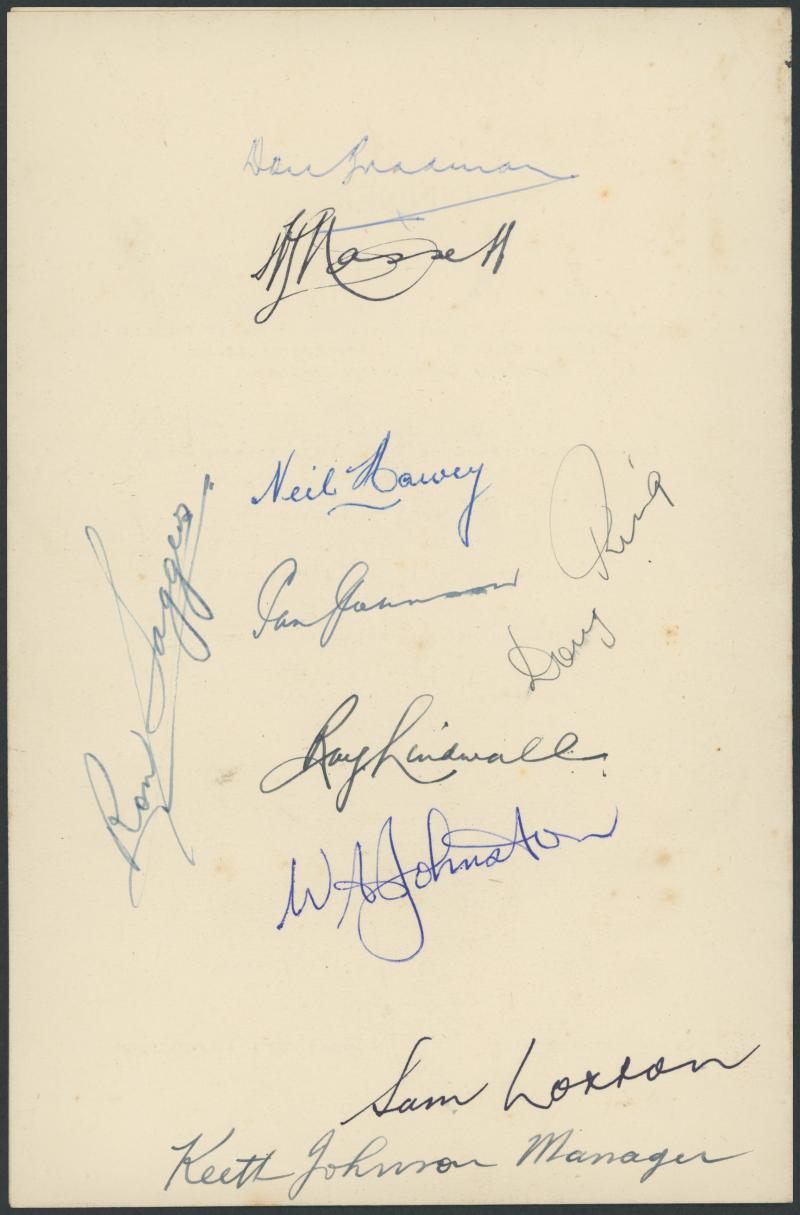 Don Bradman
A L Hassett
Neil Harvey
Ian Johnson
Doug Ring
Ron Saggers
Ray Lindwall
W A Johnston
Sam Loxton
Keith Johnson Manager